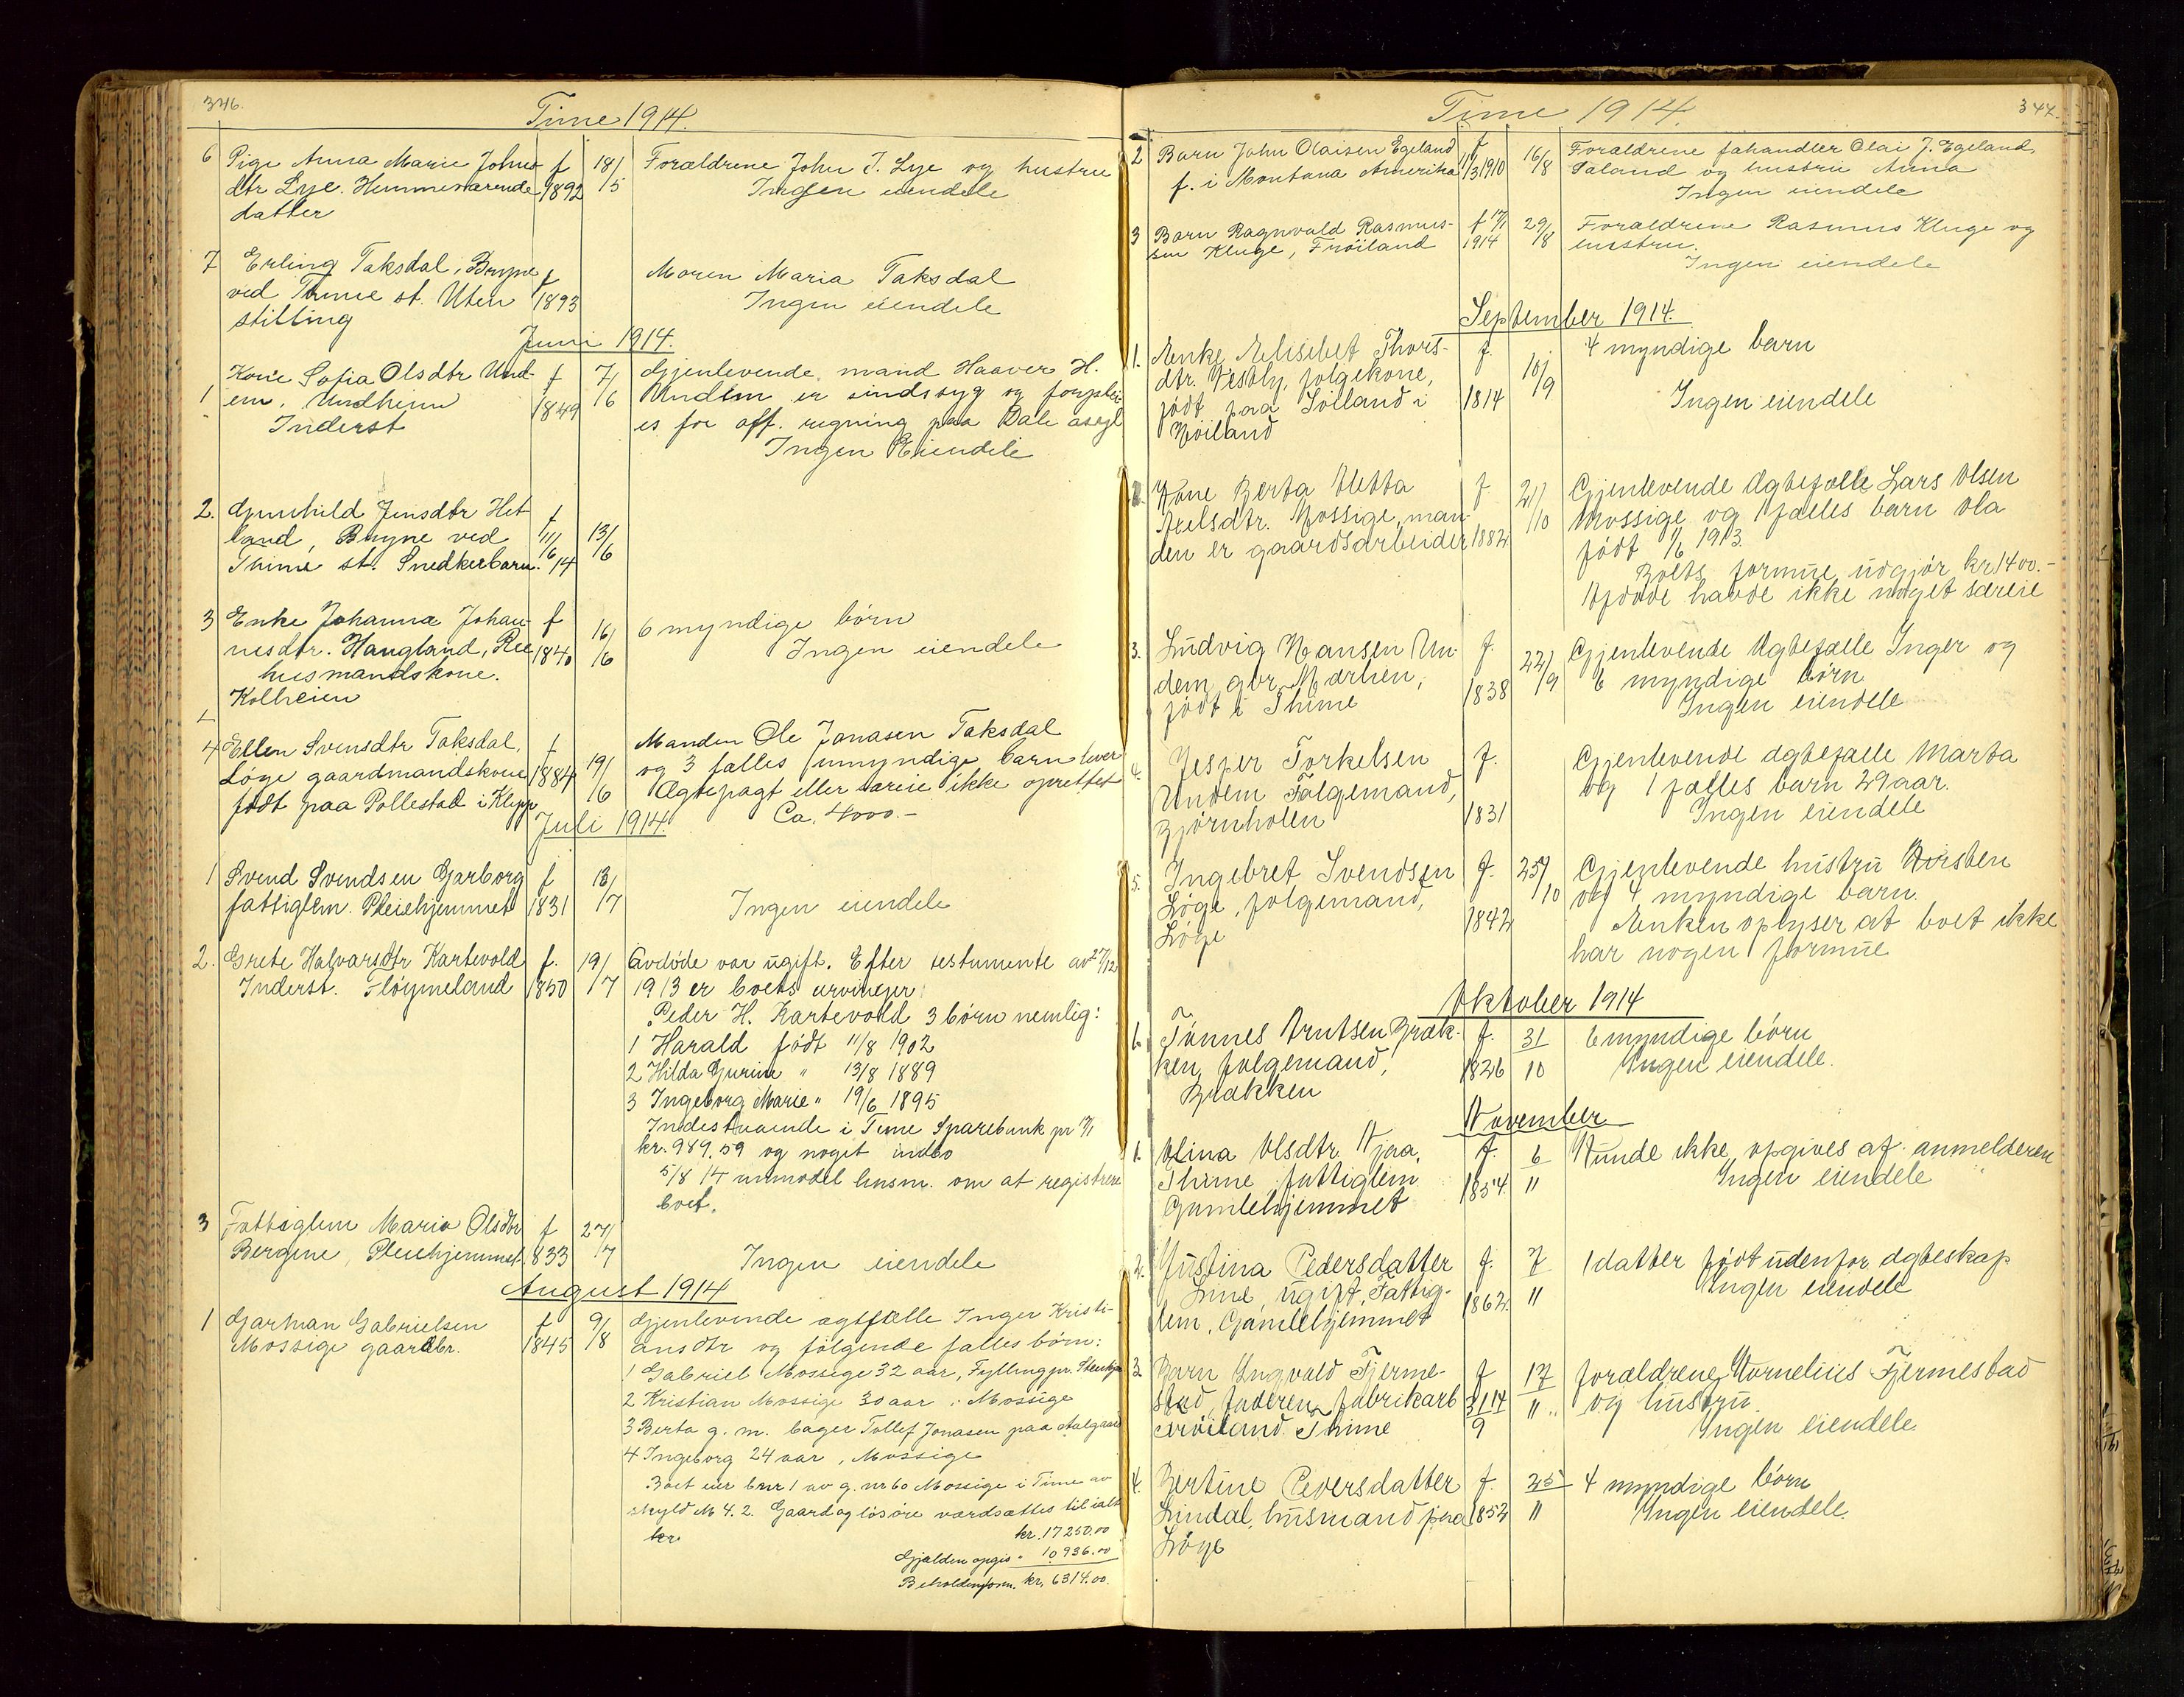 346.
Time 1914.
6 Pige Anna Marie Johns- f 18/ Forældrene John J. Lye og hustru
dtr Lye. Hemmeværende 1892 /5 Ingen eiendele
datter
7 Erling Taksdal, Bryne f Moren Maria Taksdal
ved Thime st. Uten 1893 Ingen eiendele
stilling
Juni 1914.
Kone Sofia Olsdtr Und- f 7/ Gjenlevende mand Haaver H.
1 em, Undheim 1849 /6 Undem er sindssyg og forplei
Inderst es for off. regning paa Dale asyl
Ingen Eiendele
2. Gunhild Jensdtr Het f
land, Bryne ved 11/ 13/
Thime st. Snedkerbarn. /6 14 /6
3 Enke Johanna Johan- f 16/ 6 myndige börn
nesdtr. Haugland, Ree 1840 /6 Ingen eiendele
husmandskone.
Kolheien
4 Ellen Svensdtr Taksdal, f Manden Ole Jonasen Taksdal
Løge gaardmandskone 1884 19/ og 3 fælles umyndige barn lever
født paa Pollestad i Klepp /6 Ægtepagt eller særeie ikke oprettet
Ca. 4000.-
Juli 1914.
1 Svend Svendsen Garborg f 13/
fattiglem. Pleiehjemmet 1831 /7 Ingen eiendele
2. Grete Halvarsdtr Kartevold f. 19/ Avdöde var ugift. Efter testamente av 27/12
Inderst. Fløymeland 1850 /7 1913 er boets arvinger:
Peder H. Kartevold 3 börn nemlig:
1 Harald født 11/8 1902
2 Hilda Gurine " 13/8 1889
3 Ingeborg Marie " 19/6 1895
Indestaaende i Time Sparebank pr 1/1
kr. 989.59 og noget indbo
5/8 14 anmodet lensm. om at registrere
boet.
3 Fattiglem Maria Olsdtr f 27/
Bergene, Pleiehjemmet 1833 /7 Ingen eiendele
August 1914
1 Garman Gabrielsen f 9/ Gjenlevende ægtefælle Inger Kristi-
Mossige gaardbr. 1845 /8 ansdtr og følgende fælles börn:
1 Gabriel Mossige 32 aar, Fylling pr.
2 Kristian Mossige 30 aar, Mossige
3 Berta g. m. bager Tollef Jonasen paa Aalgaard
4 Ingeborg 24 aar, Mossige
Boet eier bnr 1 av g. nr 60 Mossige i Time av
skyld M 4.2. Gaard og lösöre værdsættes til ialt
kr. kr. 17250.00
Gjælden opgis " 10936.00
Beholden form. kr. 6314.00.
347.
Time 1914.
2 Barn John Olaisen Egeland f 16/8 Forældrene fæhandler Olai J. Egeland,
f. i Montana Amerika 11/3 1910 Taland og hustru Anna
Ingen eiendele
3 Barn Ragnvald Rasmus- f 17/1 29/8 Forældrene Rasmus Kluge og
sen Kluge, Frøiland 1914 hustru.
Ingen eiendele
September 1914.
1. Enke Elisebet Thors- f. 4 myndige barn
dtr. Vestly, folgekone, 10/9
født paa Soiland i 1814 Ingen eiendele
Høiland
2. Kone Berta Oletta f 21/ Gjenlevende Ægtefælle Lars Olsen
Axelsdtr. Mossige, man- /10 Mossige og 1 fælles barn Ola
den er gaardsarbeider 1884 født 1/6 1913
Boets formue udgjør kr 1400.-
Afdøde havde ikke noget særeie
3. Ludvig Hansen Un- f. 22/ Gjenlevende Ægtefælle Inger og
dem, gbr. 1838 /9 6 myndige børn
født i Thime Ingen eiendele
4. Jesper Torkelsen f. Gjenlevende ægtefælle Marta
Undem Folgemand, og 1 fælles barn 29 aar.
Bjørnholen 1831 Ingen eiendele
5. Ingebret Svendsen f. 25/ Gjenlevende hustru Kirsten
Løge, folgemand, 1842 /10 og 4 myndige barn.
Løge Enken oplyser at boet ikke
har nogen formue
Oktober 1914
1. Tønnes Knutsen Bræk- f. 31 6 myndige børn
ken, folgemand, 1826 10 Ingen eiendele.
Brækken
November
1. Olina Olsdtr. Njaa, f. 6 Kunde ikke opgives af anmelderen
Thime fattiglem 1854. 11 Ingen eiendele
Gamlehjemmet
2. Justina Pedersdatter f. 7 1 datter født udenfor ægteskap
Line, ugift, Fattig- 1862. 11 Ingen eiendele
lem, Gamlehjemmet
3 Barn Ingvald Fjerme- f 17 forældrene Kornelius Fjermestad
stad, faderen fabrikarb 3/9 14 11 og hustru.
Frøiland Thime Ingen eiendele.
4. Bertine Pedersdatter f. 25 4 myndige børn
Lindal, husmand paa 1852 11 Ingen eiendele.
Løge